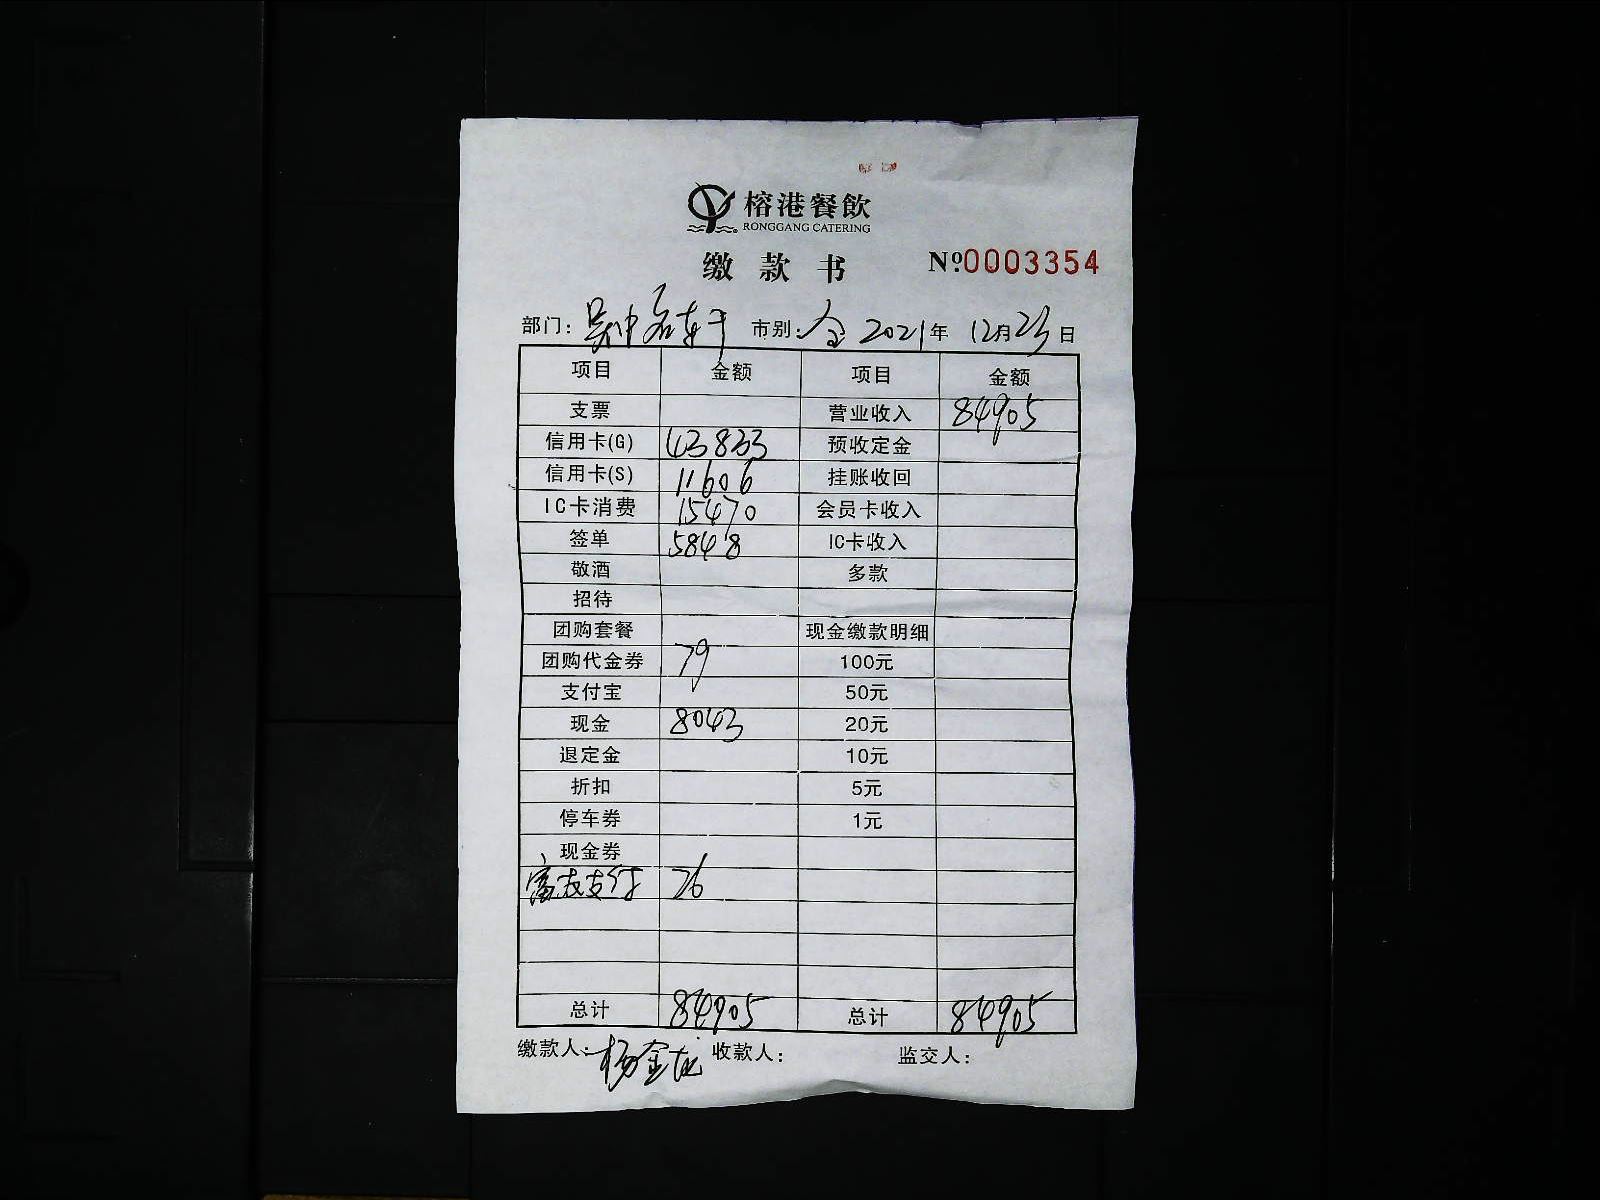 榕港餐飲
RONGGANG CATERING
缴款书 №0003354
部门: 吴中 市别: 全 2021年 12月23日
项目 金额 项目 金额
支票 营业收入 84905
信用卡(G) 43833 预收定金
信用卡(S) 11606 挂账收回
IC卡消费 15470 会员卡收入
签单 5848 IC卡收入
敬酒 多款
招待
团购套餐 现金缴款明细
团购代金券 79 100元
支付宝 50元
现金 8043 20元
退定金 10元
折扣 5元
停车券 1元
现金券
富友支付 26
总计 84905 总计 84905
缴款人: 杨金龙 收款人: 监交人: